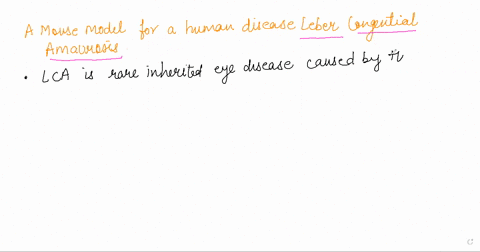 A Mouse Model for a human disease Leber Congential
Amaurosis
• LCA is rare inherited eye disease caused by